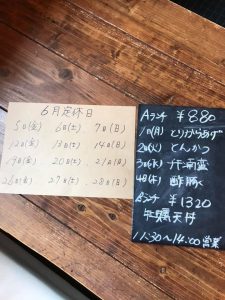 6月定休日
5日(金) 6日(土) 7日(日)
12日(金) 13日(土) 14日(日)
19日(金) 20日(土) 21日(日)
26日(金) 27日(土) 28日(日)
Aランチ ¥880
1日(月) とりからあげ
2日(火) とんかつ
3日(水) チキン南蛮
4日(木) 酢豚
Bランチ ¥1320
天丼
11:30〜14:00 営業